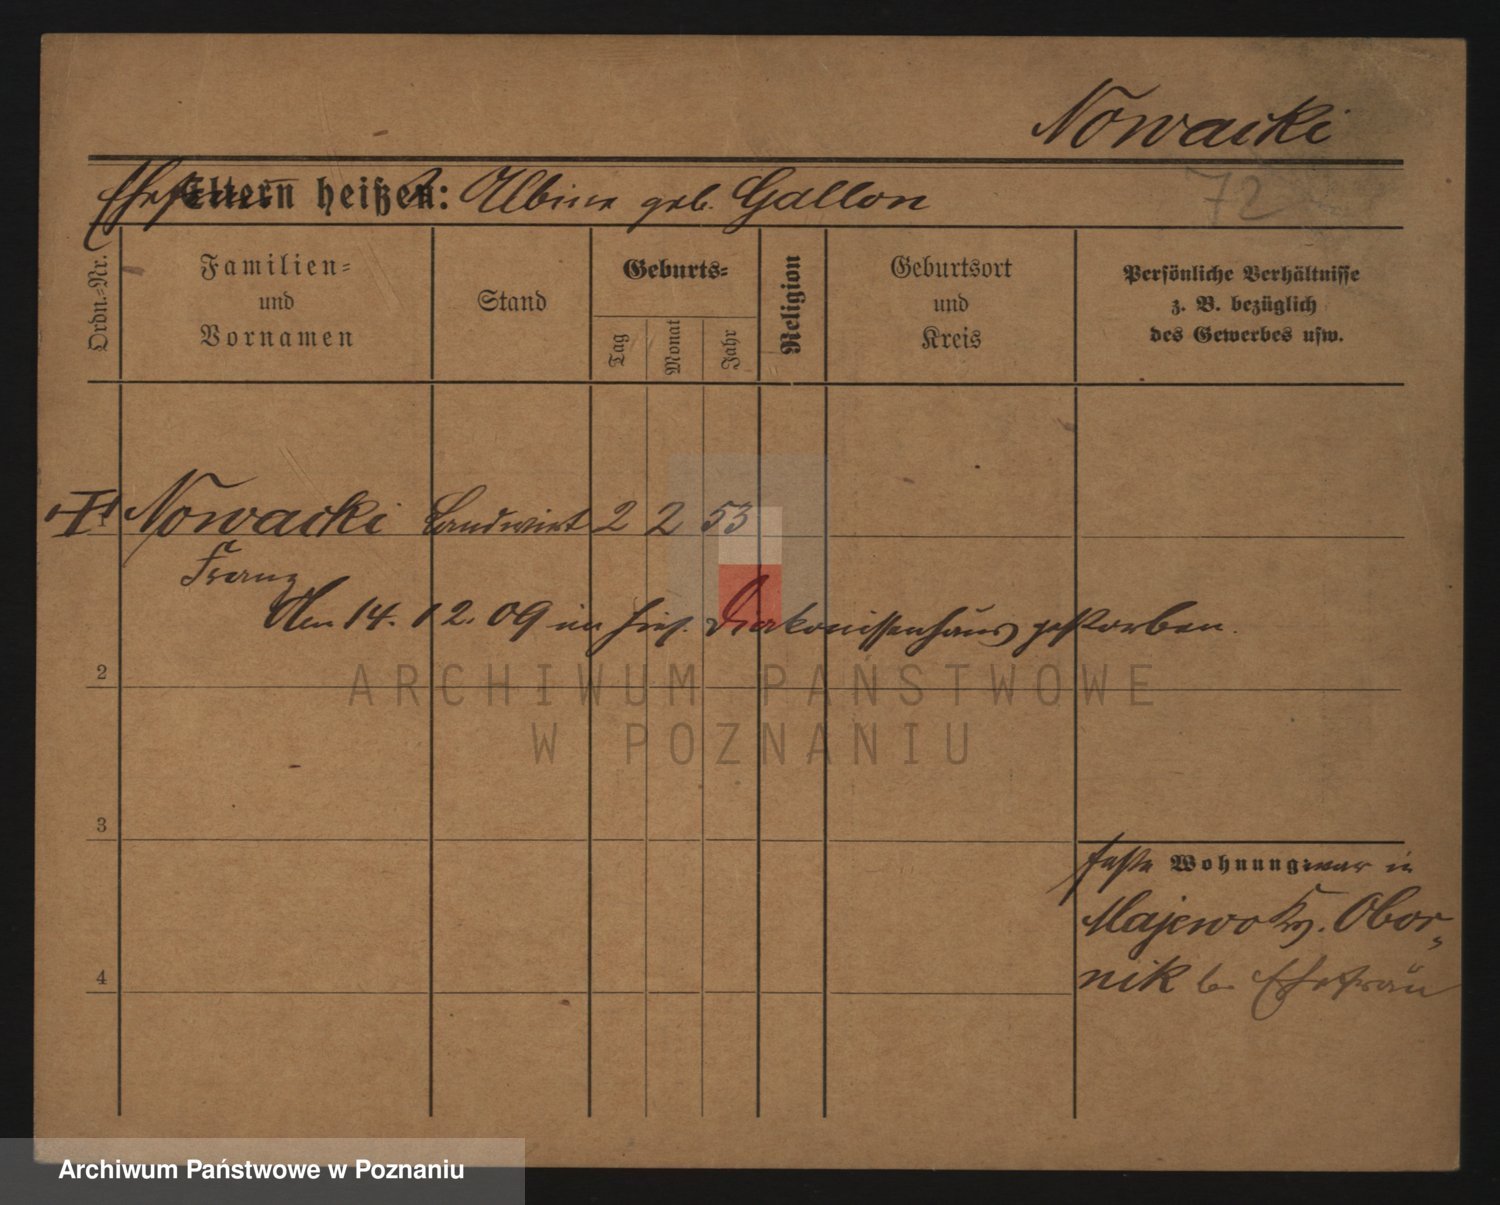 Nowacki
72
Ehefrau Eltern heißen: Albine geb. Gallon
Ordn.-Nr.
Familien-
und
Vornamen
Stand
Geburts-
Tag
Monat
Jahr
Religion
Geburtsort
und
Kreis
Persönliche Verhältnisse
z. B. bezüglich
des Gewerbes usw.
1 Nowacki Landwirt 2 2 53
Franz
Am 14. 12. 09 im hies. Diakonissenhaus gestorben.
ARCHIWUM PAŃSTWOWE
W POZNANIU
2
3
feste Wohnung war in
Majewo Kr. Obor-
nik b. Ehefrau
4
Archiwum Państwowe w Poznaniu